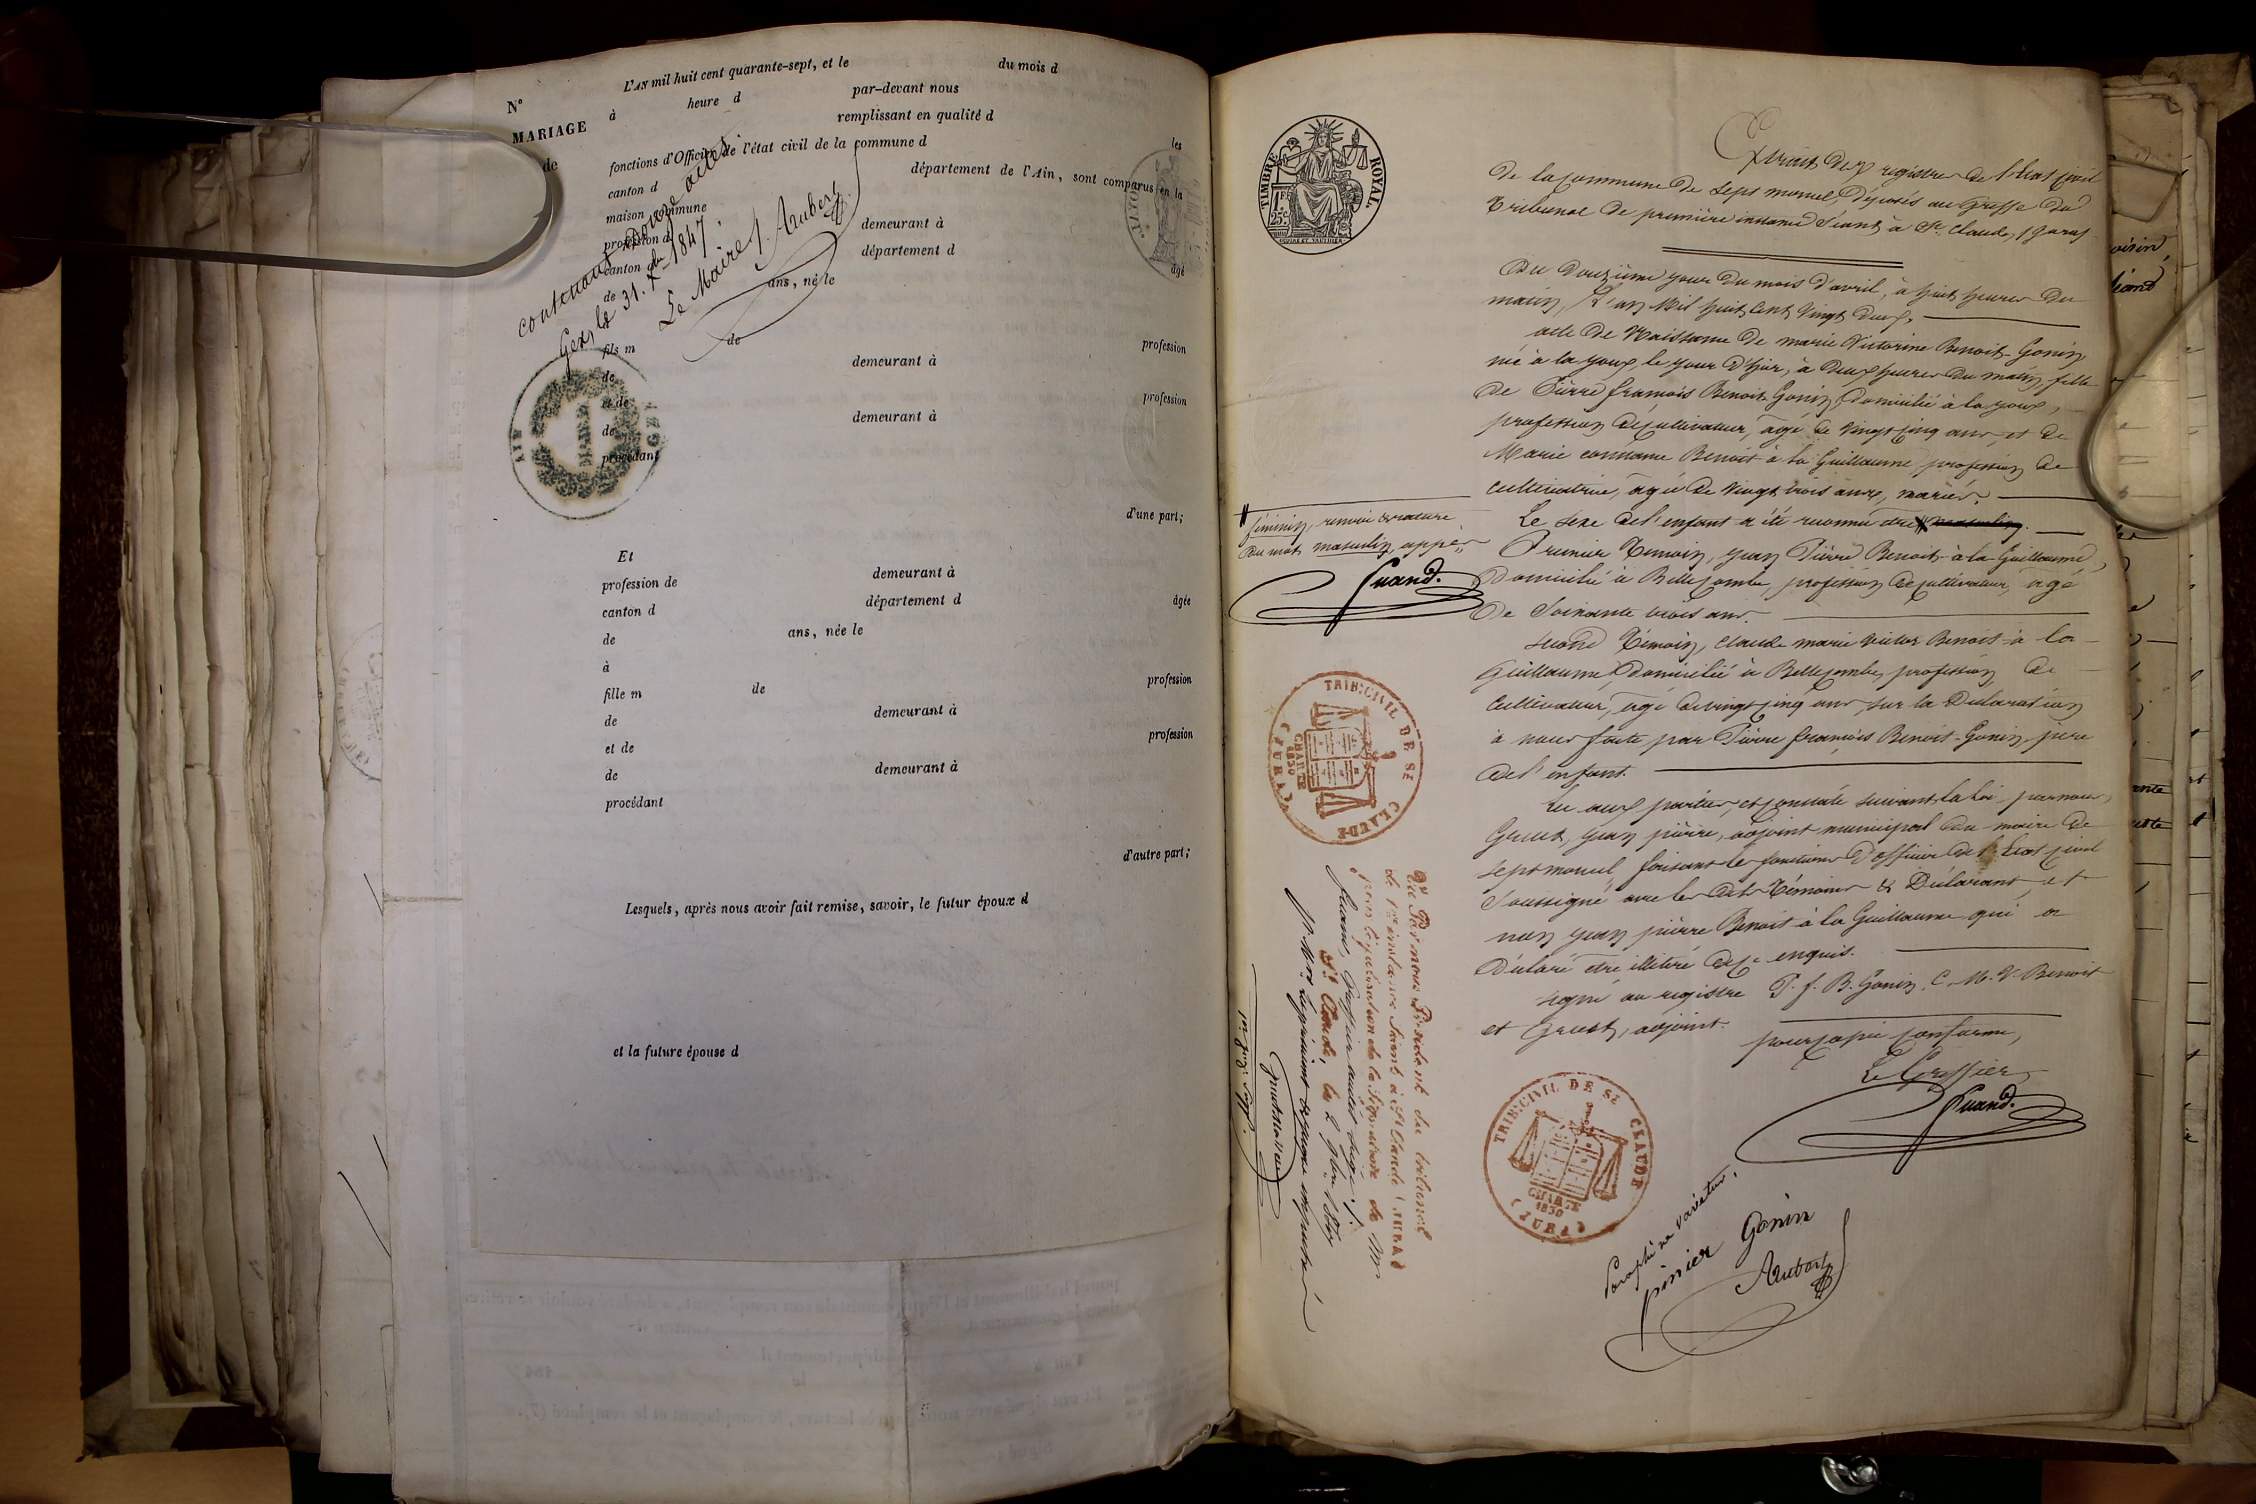 N°
MARIAGE
de
L'AN mil huit cent quarante-sept, et le du mois d
à heure d par-devant nous
remplissant en qualité d les
fonctions d'Officier de l'état civil de la commune d
canton d département de l'Ain, sont comparus en la
maison commune
profession d demeurant à
canton d département d âgé
de ans, né le
à
fils m de profession
de demeurant à
et de profession
de demeurant à
procédant
d'une part;
contenant douze actes
Gex, le 31. Xbre 1847.
Le Maire J. Aubert
AIN
GEX
Et
profession de demeurant à
canton d département d âgée
de ans, née le
à
fille m de profession
de demeurant à
et de profession
de demeurant à
procédant
d'autre part;
Lesquels, après nous avoir fait remise, savoir, le futur époux d
et la future épouse d
TIMBRE ROYAL
1 F. 25 c.
Extrait des registres de l'état civil
de la commune de Septmoncel, déposés au Greffe du
Tribunal de première instance séant à St. Claude, (Jura).
Du douzième jour du mois d'avril, à huit heures du
matin, l'an Mil huit cent vingt deux,
acte de Naissance de marie Victorine Benoit-Gonin
née à la Joux, le jour d'hier, à deux heures du matin, fille
de Pierre françois Benoit-Gonin, domicilié à la joux,
profession de cultivateur, âgé de vingt cinq ans, et de
Marie Benoit à la Guillaume, profession de
cultivatrice, âgée de vingt trois ans, mariés.
Le sexe de l'enfant a été reconnu être masculin.
féminin, renvoi & rature
du mot masculin, app.
Guand.
Premier Témoin, Jean Pierre Benoit-à la Guillaume,
domicilié à Bellecombe, profession de cultivateur, âgé
de soixante trois ans.
second Témoin, claude marie victor Benoit-à la
Guillaume, domicilié à Bellecombe, profession de
cultivateur, âgé de vingt cinq ans, sur la Déclaration
à nous faite par Pierre françois Benoit-Gonin, père
de l'enfant.
Lu aux parties, et constaté suivant la loi, par nous,
Gruet, Jean pierre, adjoint municipal du maire de
septmoncel, faisant les fonctions d'officier de l'état civil
soussigné avec les dits Témoins & Déclarant, et
non Jean pierre Benoit-à la Guillaume qui a
déclaré être illitéré de ce enquis.
signé au registre P. f. B. Gonin, C. M. V. Benoit
et Gruet, adjoint.
pour copie conforme,
Le Greffier
Guand.
TRIB. CIVIL DE ST CLAUDE
CHARTE 1830
(JURA)
Vu Par nous Président du tribunal
de 1ère instance séant à St Claude (JURA)
pour légalisation de la signature de Mr
Guand, Greffier
St Claude, le 2
TRIB. CIVIL DE ST CLAUDE
CHARTE 1830
(JURA)
Paraphé ne varietur,
pinier Gonin
Aubert